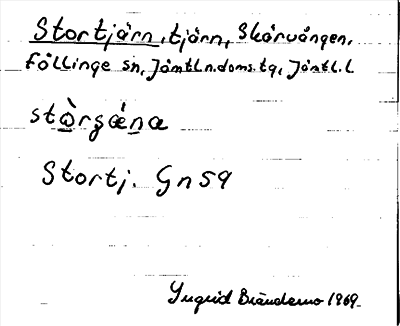 Stortjärn, tjärn, Skärvången,
Föllinge sn, Jämtl.n.doms.tg, Jämtl.l
stòrʂǽna
Stortj. Gn59
Ingrid Brändemo 1969.